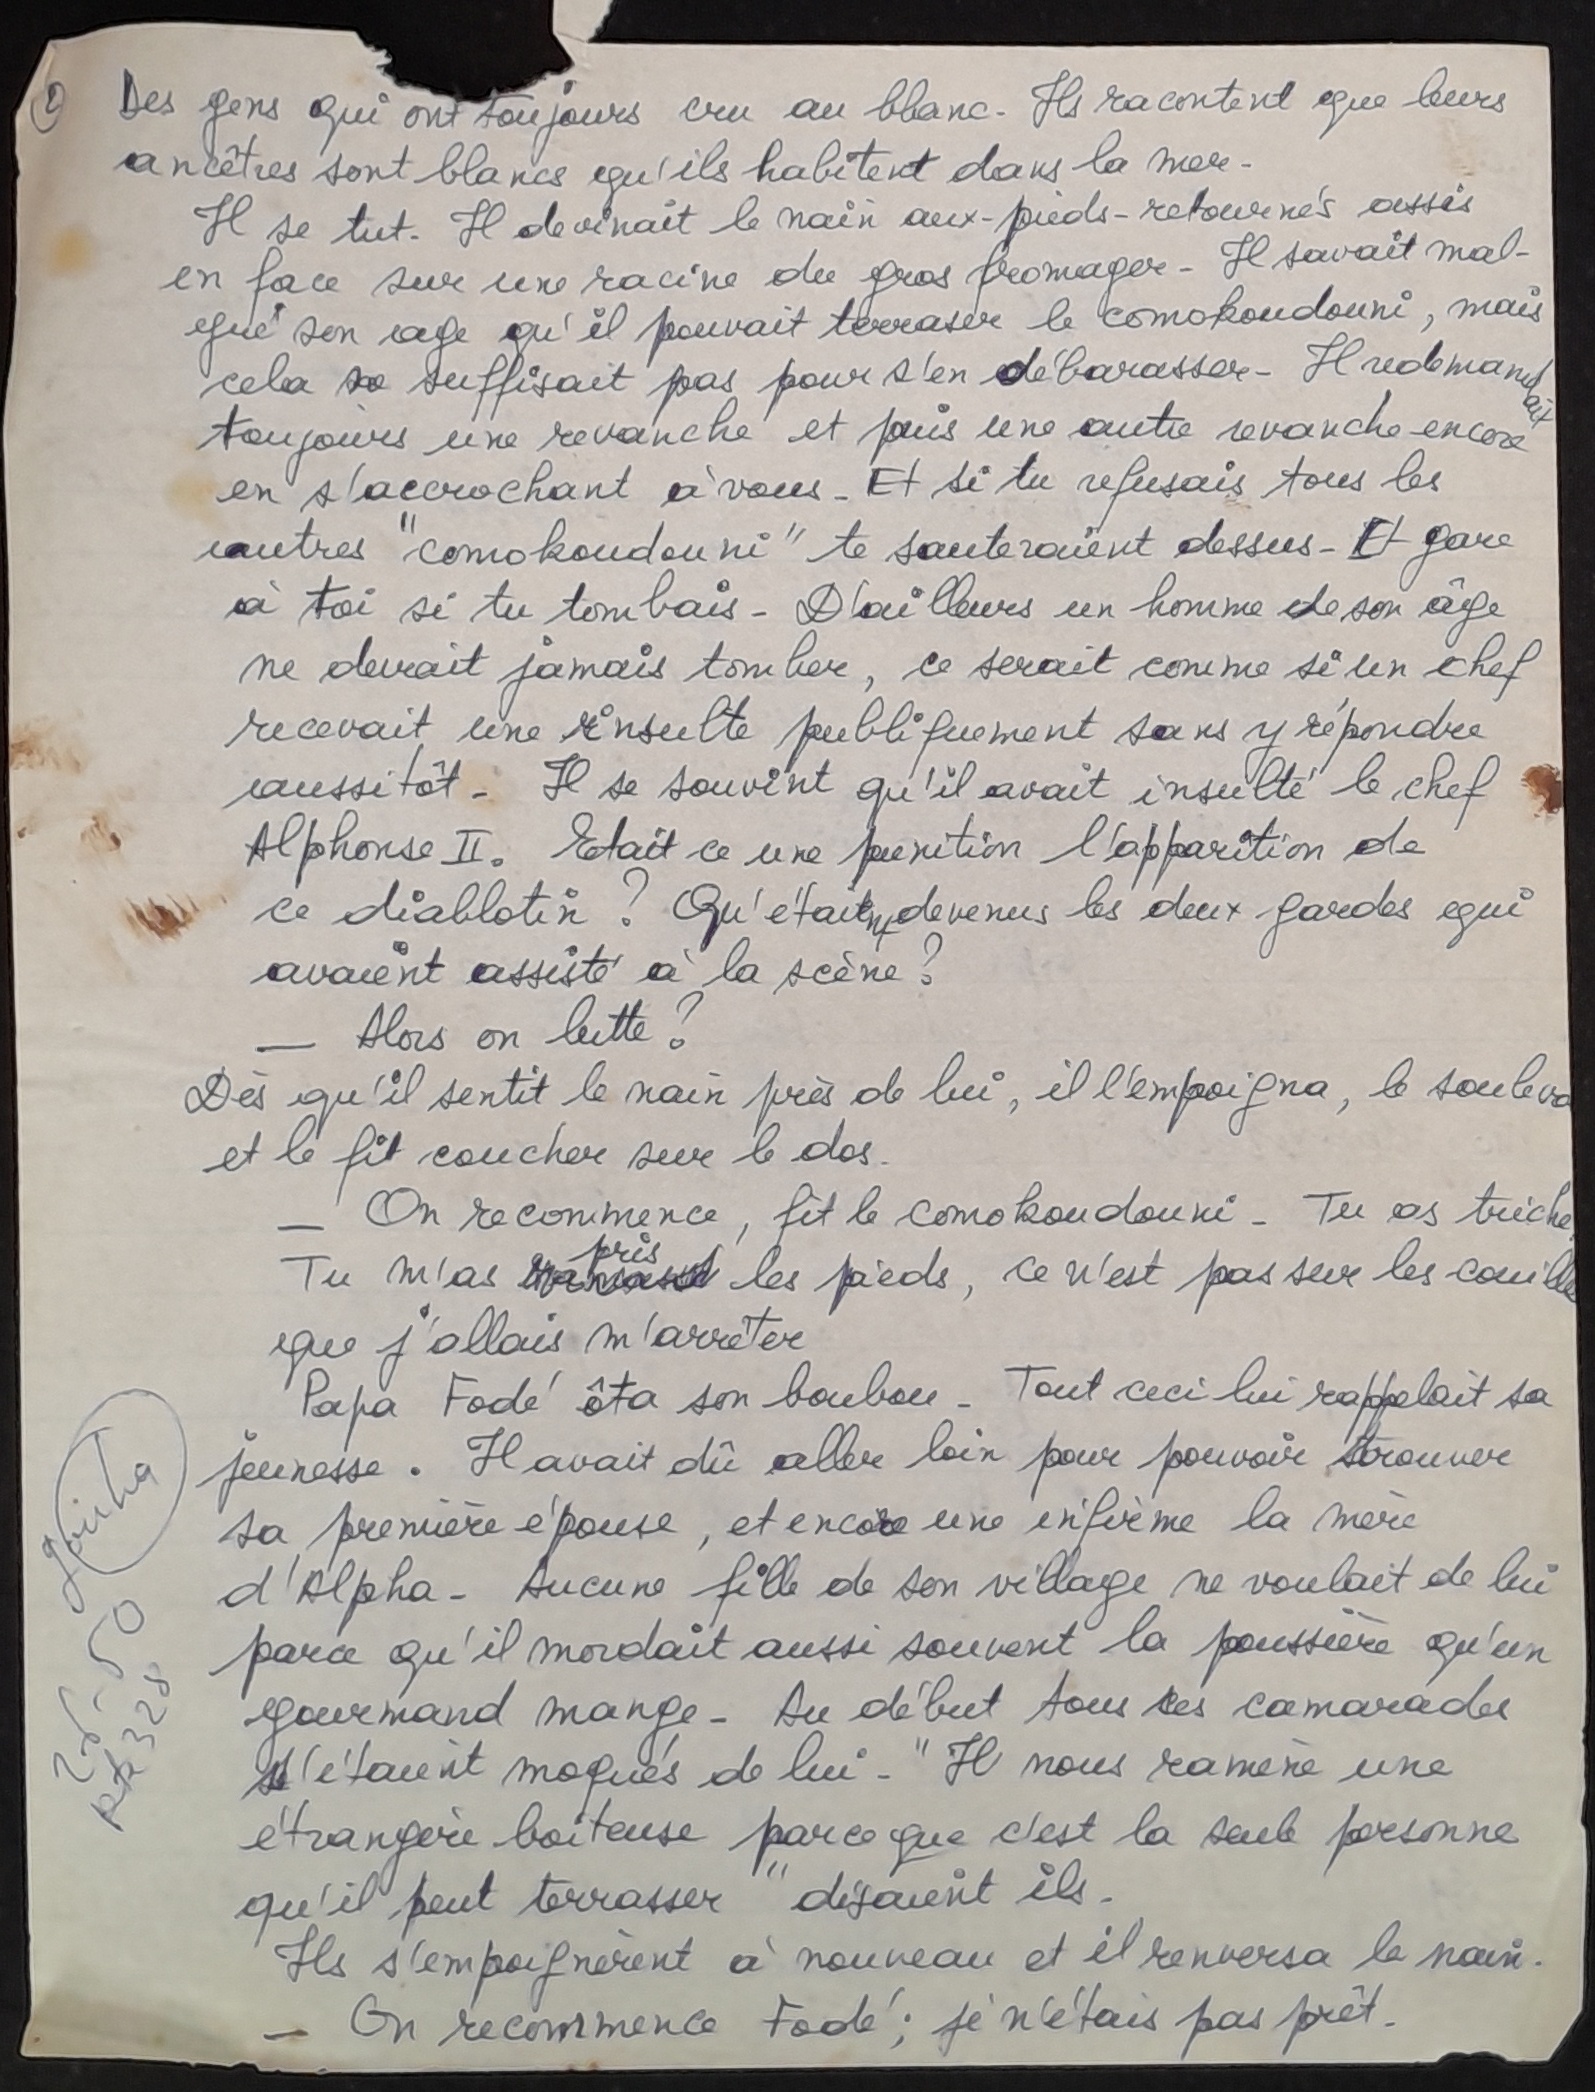 ② Des gens qui ont toujours cru au blanc. Ils racontent que leurs
ancêtres sont blancs qu'ils habitent dans la mer.
Il se tut. Il devinait le nain aux-pieds-retournés assis
en face sur une racine du gros fromager. Il savait mal-
gré son age qu'il pouvait terraser le comokoudouni, mais
cela ne suffisait pas pour s'en débarasser. Il redemandait
toujours une revanche et puis une autre revanche encore
en s'accrochant à vous. Et si tu refusais tous les
autres "comokoudouni" te sauteraient dessus. Et gare
à toi si tu tombais. D'ailleurs un homme de son âge
ne devrait jamais tomber, ce serait comme si un chef
recevait une insulte publiquement sans y répondre
aussitôt. Il se souvint qu'il avait insulté le chef
Alphonse II. Etait ce une punition l'apparition de
ce diablotin ? Qu'étaient devenus les deux gardes qui
avaient assisté à la scène ?
— Alors on lutte ?
Dès qu'il sentit le nain près de lui, il l'empoigna, le souleva
et le fit coucher sur le dos.
— On recommence, fit le comokoudouni. Tu as triché.
Tu m'as pris les pieds, ce n'est pas sur les couilles
que j'allais m'arrêter
Papa Fodé ôta son boubou. Tout ceci lui rappelait sa
jeunesse. Il avait dû aller loin pour pouvoir trouver
sa première épouse, et encore une infirme la mère
d'Alpha. Aucune fille de son village ne voulait de lui
parce qu'il mordait aussi souvent la poussière qu'un
gourmand mange. Au début tous ses camarades
s'étaient moqués de lui. "Il nous ramène une
étrangère boiteuse parce que c'est la seule personne
qu'il peut terrasser" disaient ils.
Ils s'empoignèrent à nouveau et il renversa le nain.
— On recommence Fodé ; je n'étais pas prêt.
25-50
328